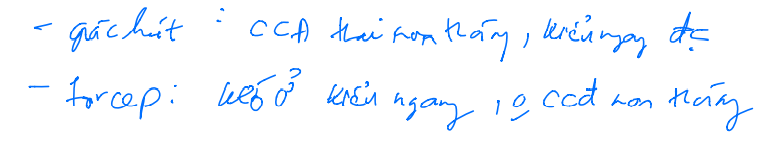 - giác hút : CCĐ thai non tháng, kiểu ngang đc
- forcep: kéo ở kiểu ngang, o CCĐ non tháng